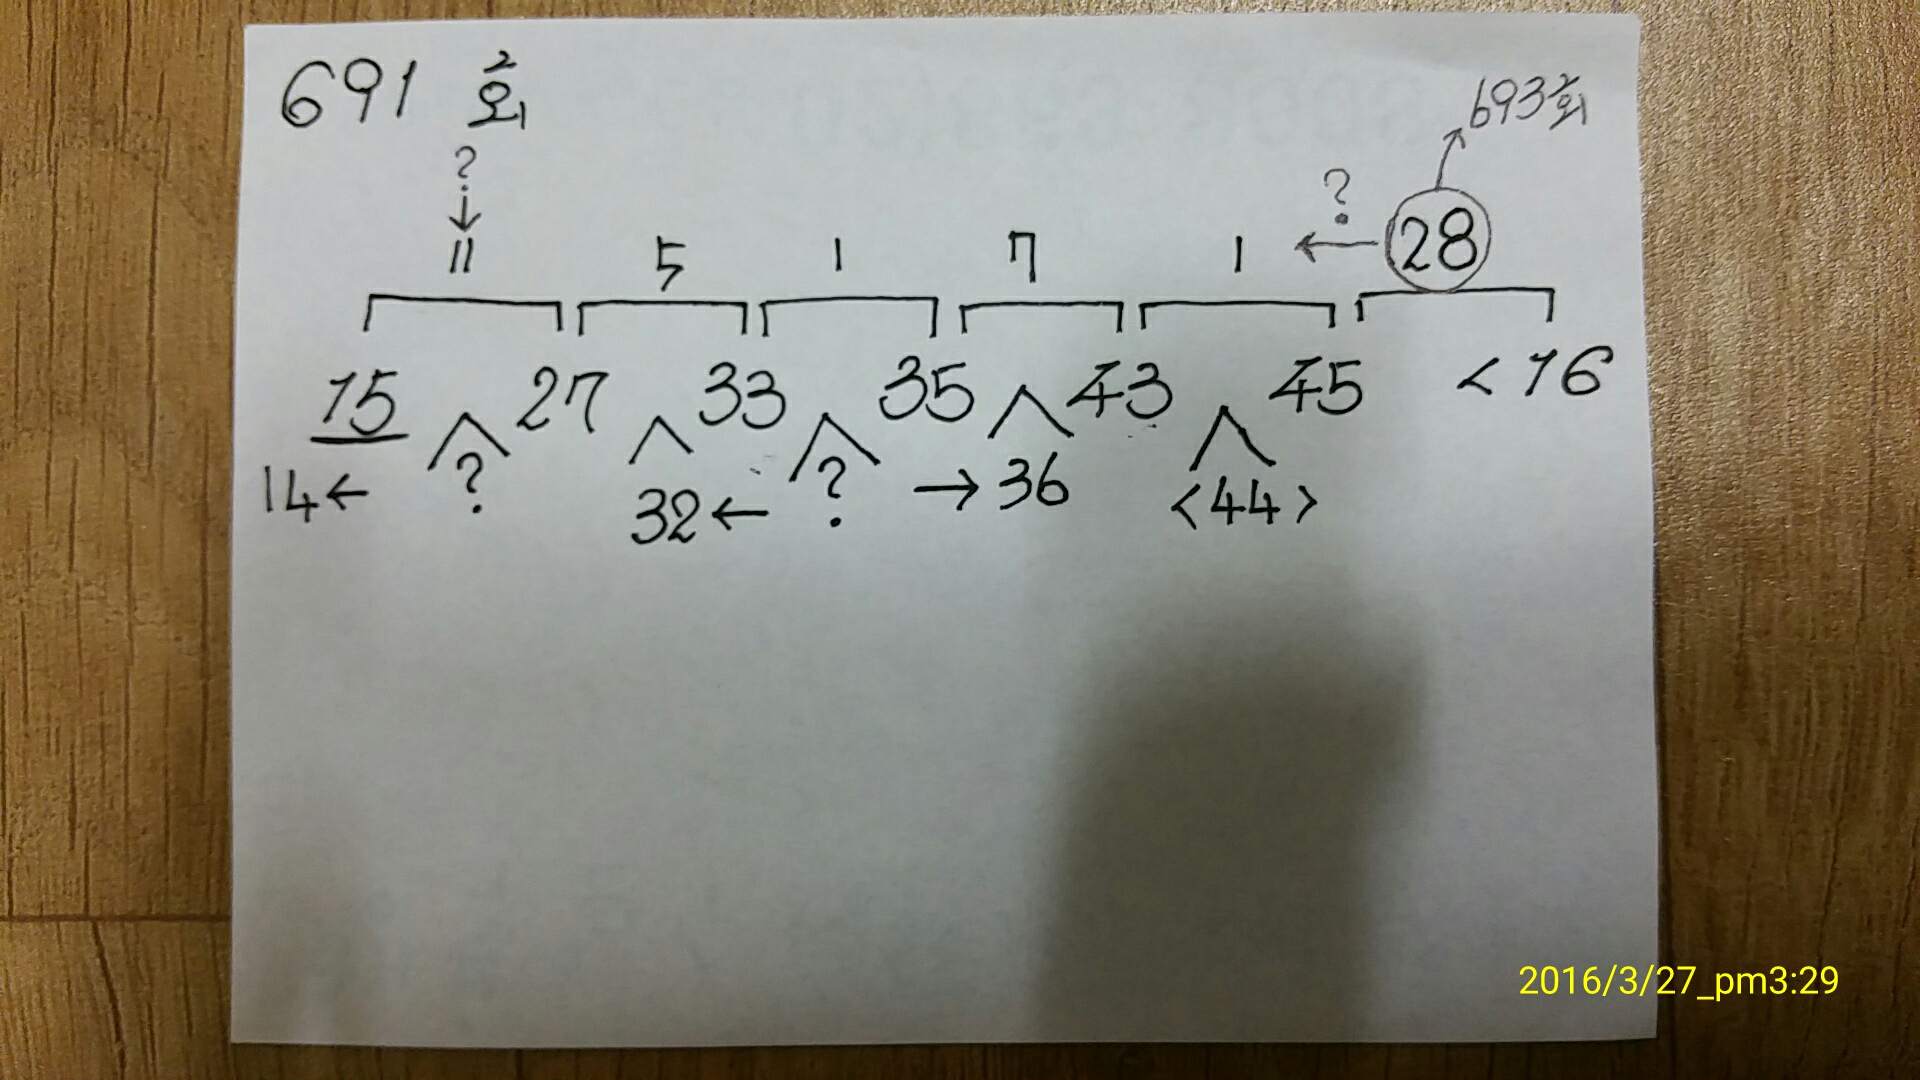 691 회
693회
?
?
11 5 1 7 1 ← 28
15 27 33 35 43 45 < 16
14← ? 32← ? →36 <44>
2016/3/27_pm3:29